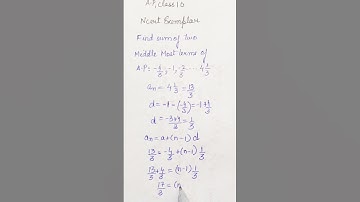 A.P, Class 10
Ncert Exemplar
Find sum of two
Middle Most terms of
A.P: -4/3, -1, -2/3 ---- 4 1/3
an = 4 1/3 = 13/3
d = -1 - (-4/3) = -1 + 4/3
d = -3+4/3 = 1/3
an = a + (n-1) d
13/3 = -4/3 + (n-1) 1/3
13/3 + 4/3 = (n-1) 1/3
17/3 = (n